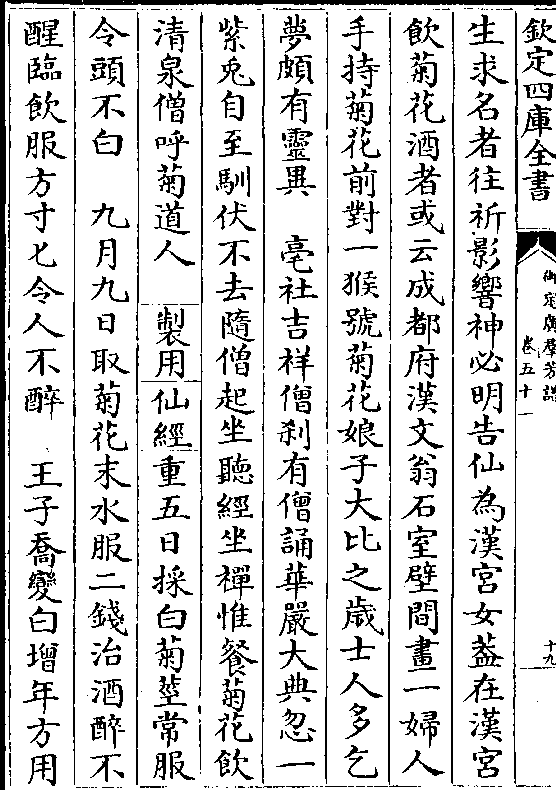 欽定四庫全書
御定廣羣芳譜
卷五十一
十九
生求名者往祈影響神必明告仙為漢宮女葢在漢宮
飲菊花酒者或云成都府漢文翁石室壁間畫一婦人
手持菊花前對一猴號菊花娘子大比之歲士人多乞
夢頗有靈異　亳社吉祥僧刹有僧誦華嚴大典忽一
紫兎自至馴伏不去隨僧起坐聽經坐禪惟餐菊花飲
清泉僧呼菊道人　製用　仙經重五日採白菊莖常服
令頭不白　九月九日取菊花末水服二錢治酒醉不
醒臨飲服方寸匕令人不醉　王子喬變白增年方用